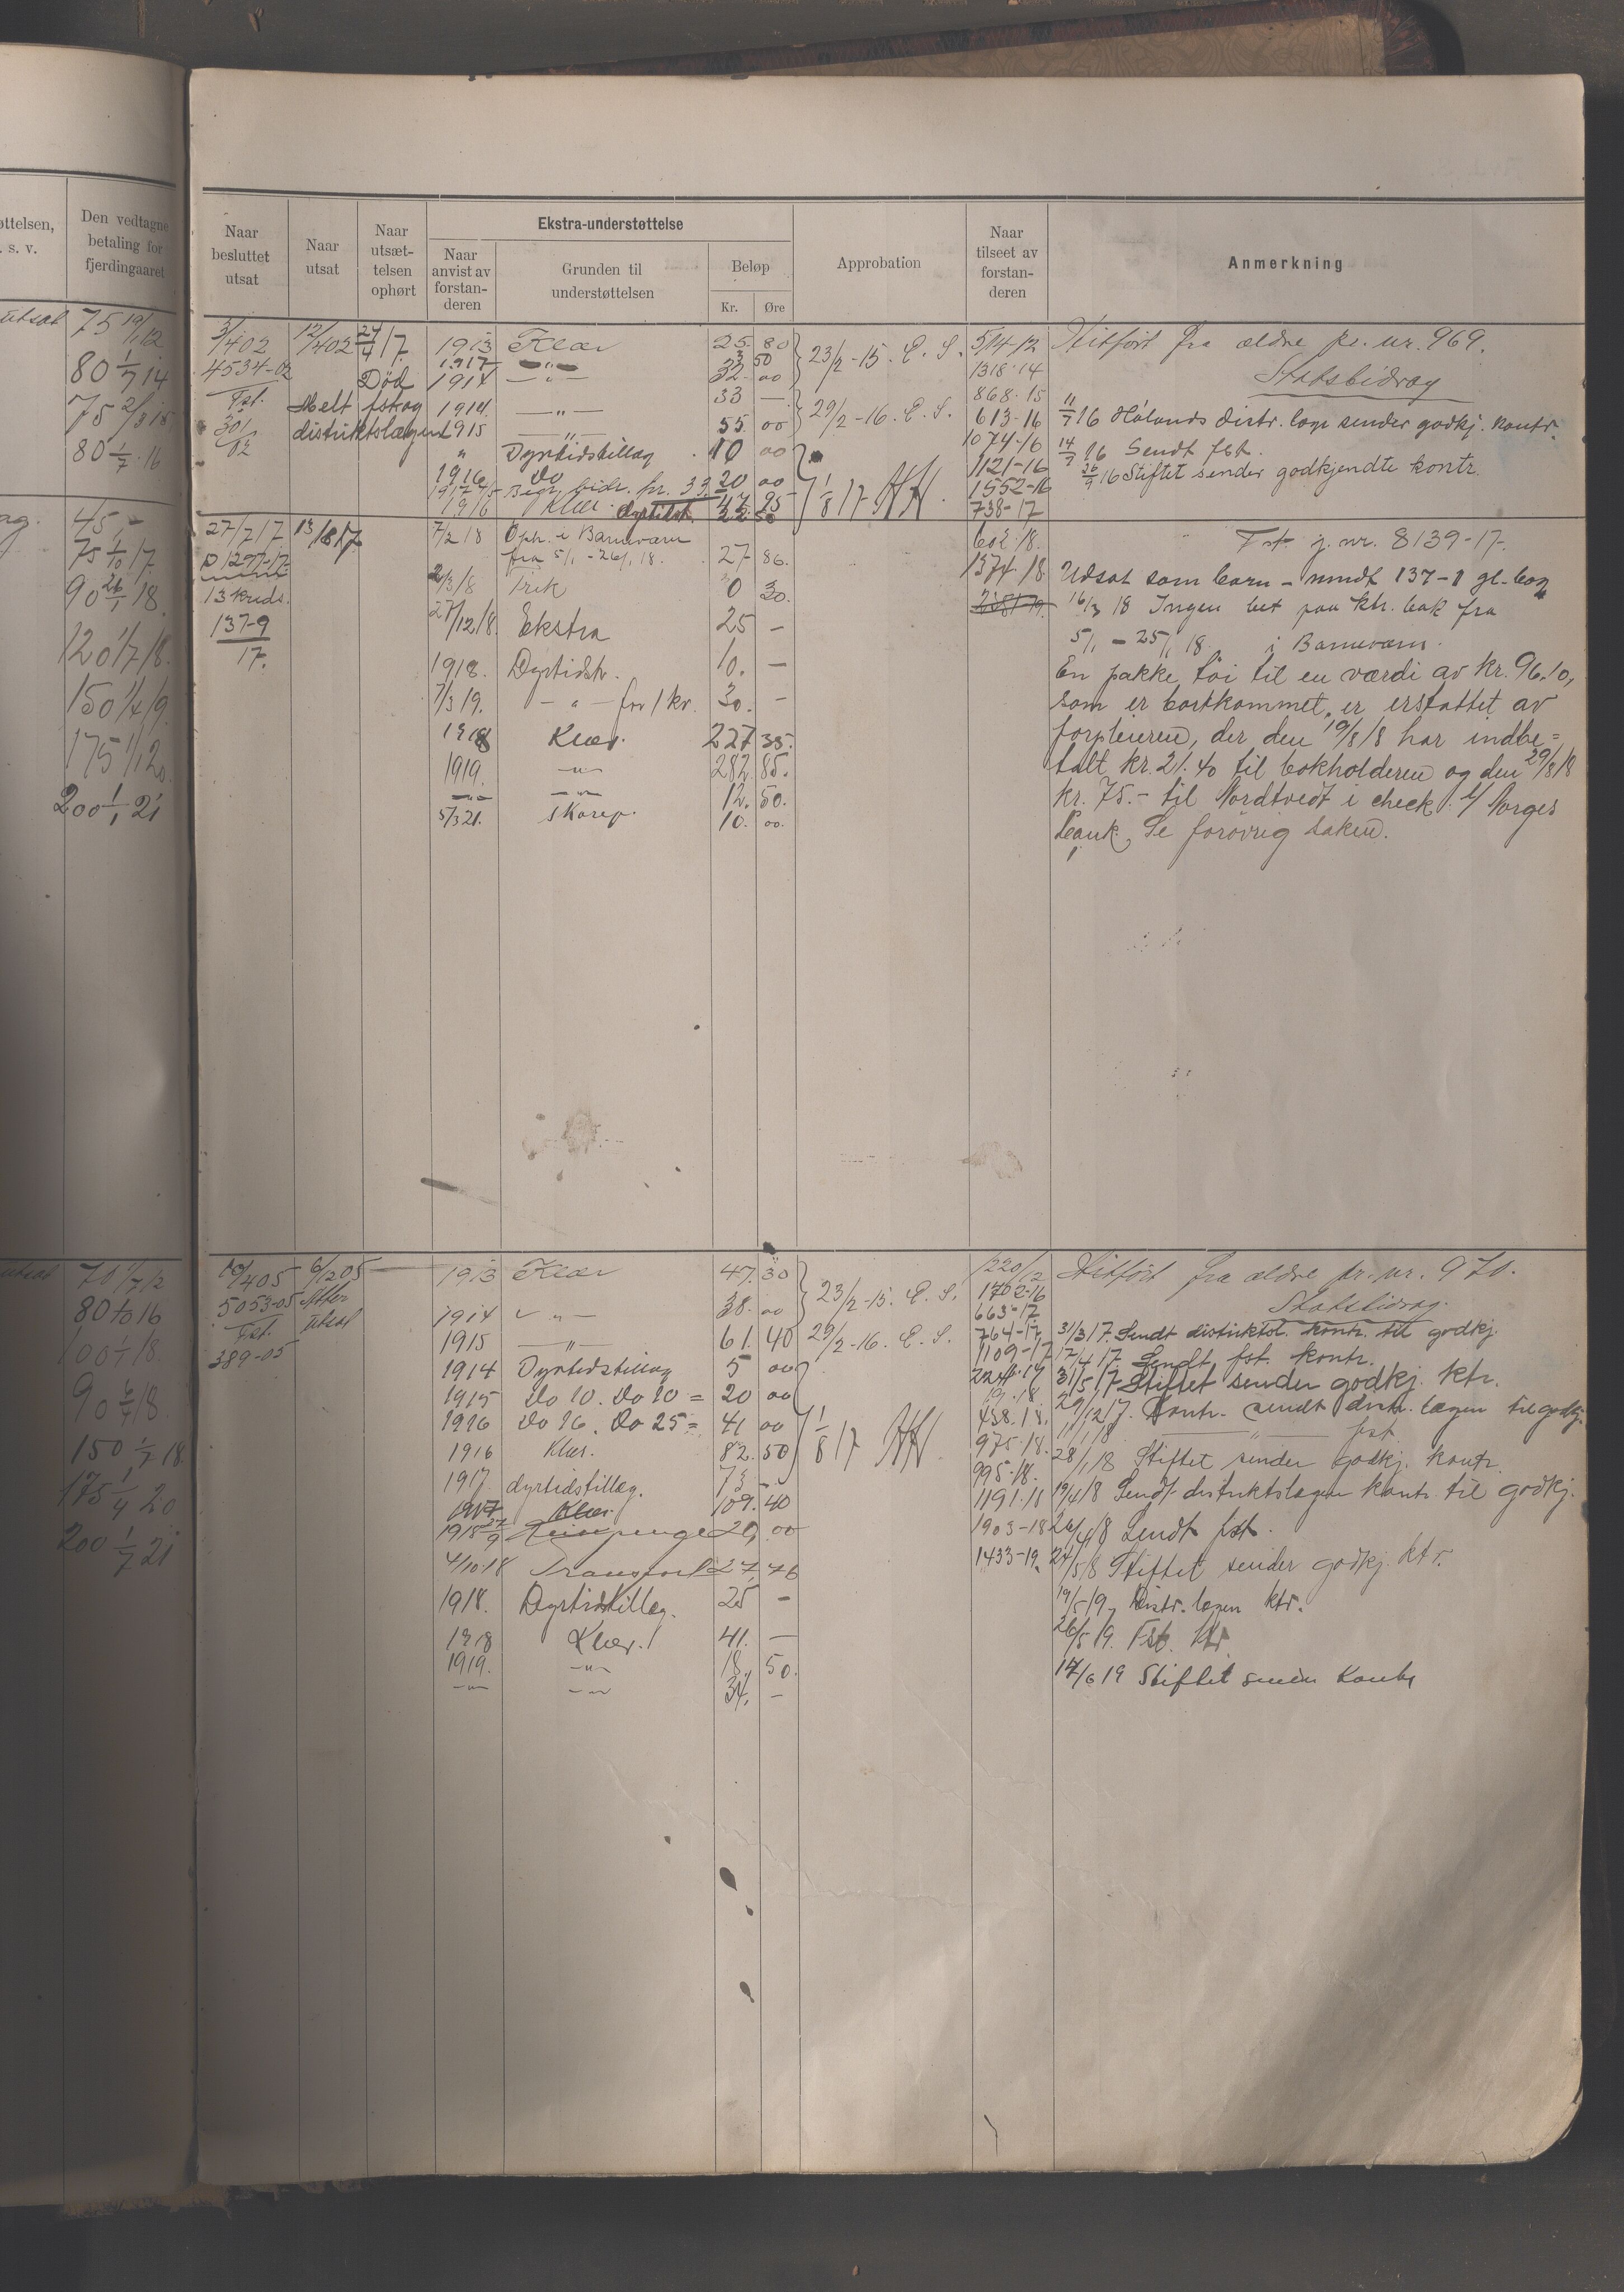 øttelsen,
. s. v.
Den vedtagne
betaling for
fjerdingaaret
utsat 75 19/1 12
80 1/7 14
75 2/3 15
80 1/7 16
45,-
75 1/10 17
90 26/1 18
120 1/7 18.
150 1/4 19.
175 1/1 20
200 1/1 21
utsat 70 1/7 12
80 1/10 16
100 1/1 18.
90 6/4 18.
150 1/7 18
175 1/4 20
200 1/7 21
Naar
besluttet
utsat
Naar
utsat
Naar
utsæt-
telsen
ophørt
Ekstra-understøttelse
Naar
anvist av
forstan-
deren
Grunden til
understøttelsen
Beløp
Kr. Øre
Approbation
Naar
tilseet av
forstan-
deren
Anmerkning
3/1402 12/402 24/4 17.
4534-02 Død
Fst. Melt fst og
301/02 distriktslægen
1913 Klær 25. 80
1917 3 50
1914 —"— 32 00
1914. —"— 33 —
1915 —"— 55. 00
" Dyrtidstillæg 10 00
1916 Do 20 00
Begr. bidr.
1916 Klær.
23/2-15. E. S.
29/2-16. E. S.
1/8 17
514-12
1318-14
868-15
613-16
1074-16
1121-16
1552-16
738-17
Hitført fra ældre pr. nr. 969.
Statsbidrag
11/7 16 Hölands distr. læge sender godkj. kontr.
14/7 16 Sendt fst.
26/9 16 Stiftet sender godkjendte kontr.
27/7 17 13/8 17
13 kreds.
137-9
17.
7/2 18 Oph. i Barneværn
fra 5/1 - 26/1 18. 27 86.
2/3 18 0 30.
27/12 18. Ekstra 25 —
1918. Dyrtidstr. 10. —
7/3 19. — " — for 1 kv. 30. —
1918 Klær. 227 35.
1919. —"— 282. 85.
—"— —"— 12. 50.
5/3 21. Skorep. 10. 00.
602-18.
1374-18
Fst. j. nr. 8139-17.
Udsat som barn - 137-1
16/3 18 Ingen bet paa ktr. bak fra
5/1 - 25/1 18. i Barneværn.
En pakke töi til en værdi av kr. 96.10,
som er bortkommet, er erstattet av
forpleieren, der den 19/8 18 har indbe=
talt kr. 21.40 til bokholderen og den 29/8 18
kr. 75.- til Nordtvedt i check p/ Norges
Bank. Se forøvrig saken.
10/405 6/205
5053-05 Atter
Fst. utsat
389-05
1913 Klær 47. 30
1914 —"— 38. 00
1915 —"— 61. 40
1914 Dyrtidstillæg 5 00
1915 Do 10. Do 10 = 20 00
1916 Do 16. Do 25 = 41 00
1916 Klær. 82. 50
1917. dyrtidstillæg. 75 -
1917 Klær 109. 40
1918 27/9 Reisepenge 20, 00
4/10-18 Transport 27, 76
1918. Dyrtidstillæg. 25 —
1918 Klær. 41. —
1919. —"— 18. 50.
—"— —"— 34. —
23/2-15. E. S.
29/2-16. E. S.
1/8 17
1220/12
1702-16
663-17
764-17
1109-17
458.18.
975-18.
995-18.
1191-18
1903-18
1433-19.
Hitført fra ældre pr. nr. 970.
Statsbidrag.
31/3 17. Sendt distriktsl. kontr. til godkj.
17/4 17 Sendt fst. kontr.
31/5 17 Stiftet sender godkj. ktr.
29/12 17. Kontr. sendt distr. lægen til godkj.
11/1 18 —"— fst.
28/1 18 Stiftet sender godkj. kontr.
19/4 18 Sendt distriktslægen kontr. til godkj.
26/4 18 Sendt fst.
24/5 18 Stiftet sender godkj. ktr.
19/5 19, Distr. lægen ktr.
26/5 19. Fst. ktr.
17/6 19 Stiftet sender Kontr